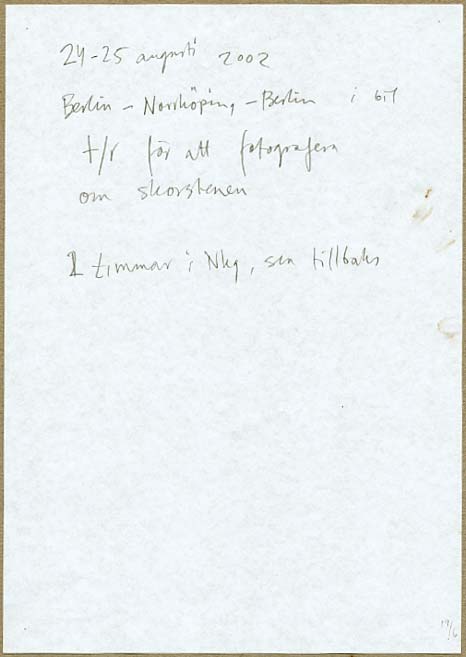 24-25 augusti 2002
Berlin - Norrköping, - Berlin i bil
t/r för att fotografera
om skorstenen
2 timmar i Nkg, sen tillbaks